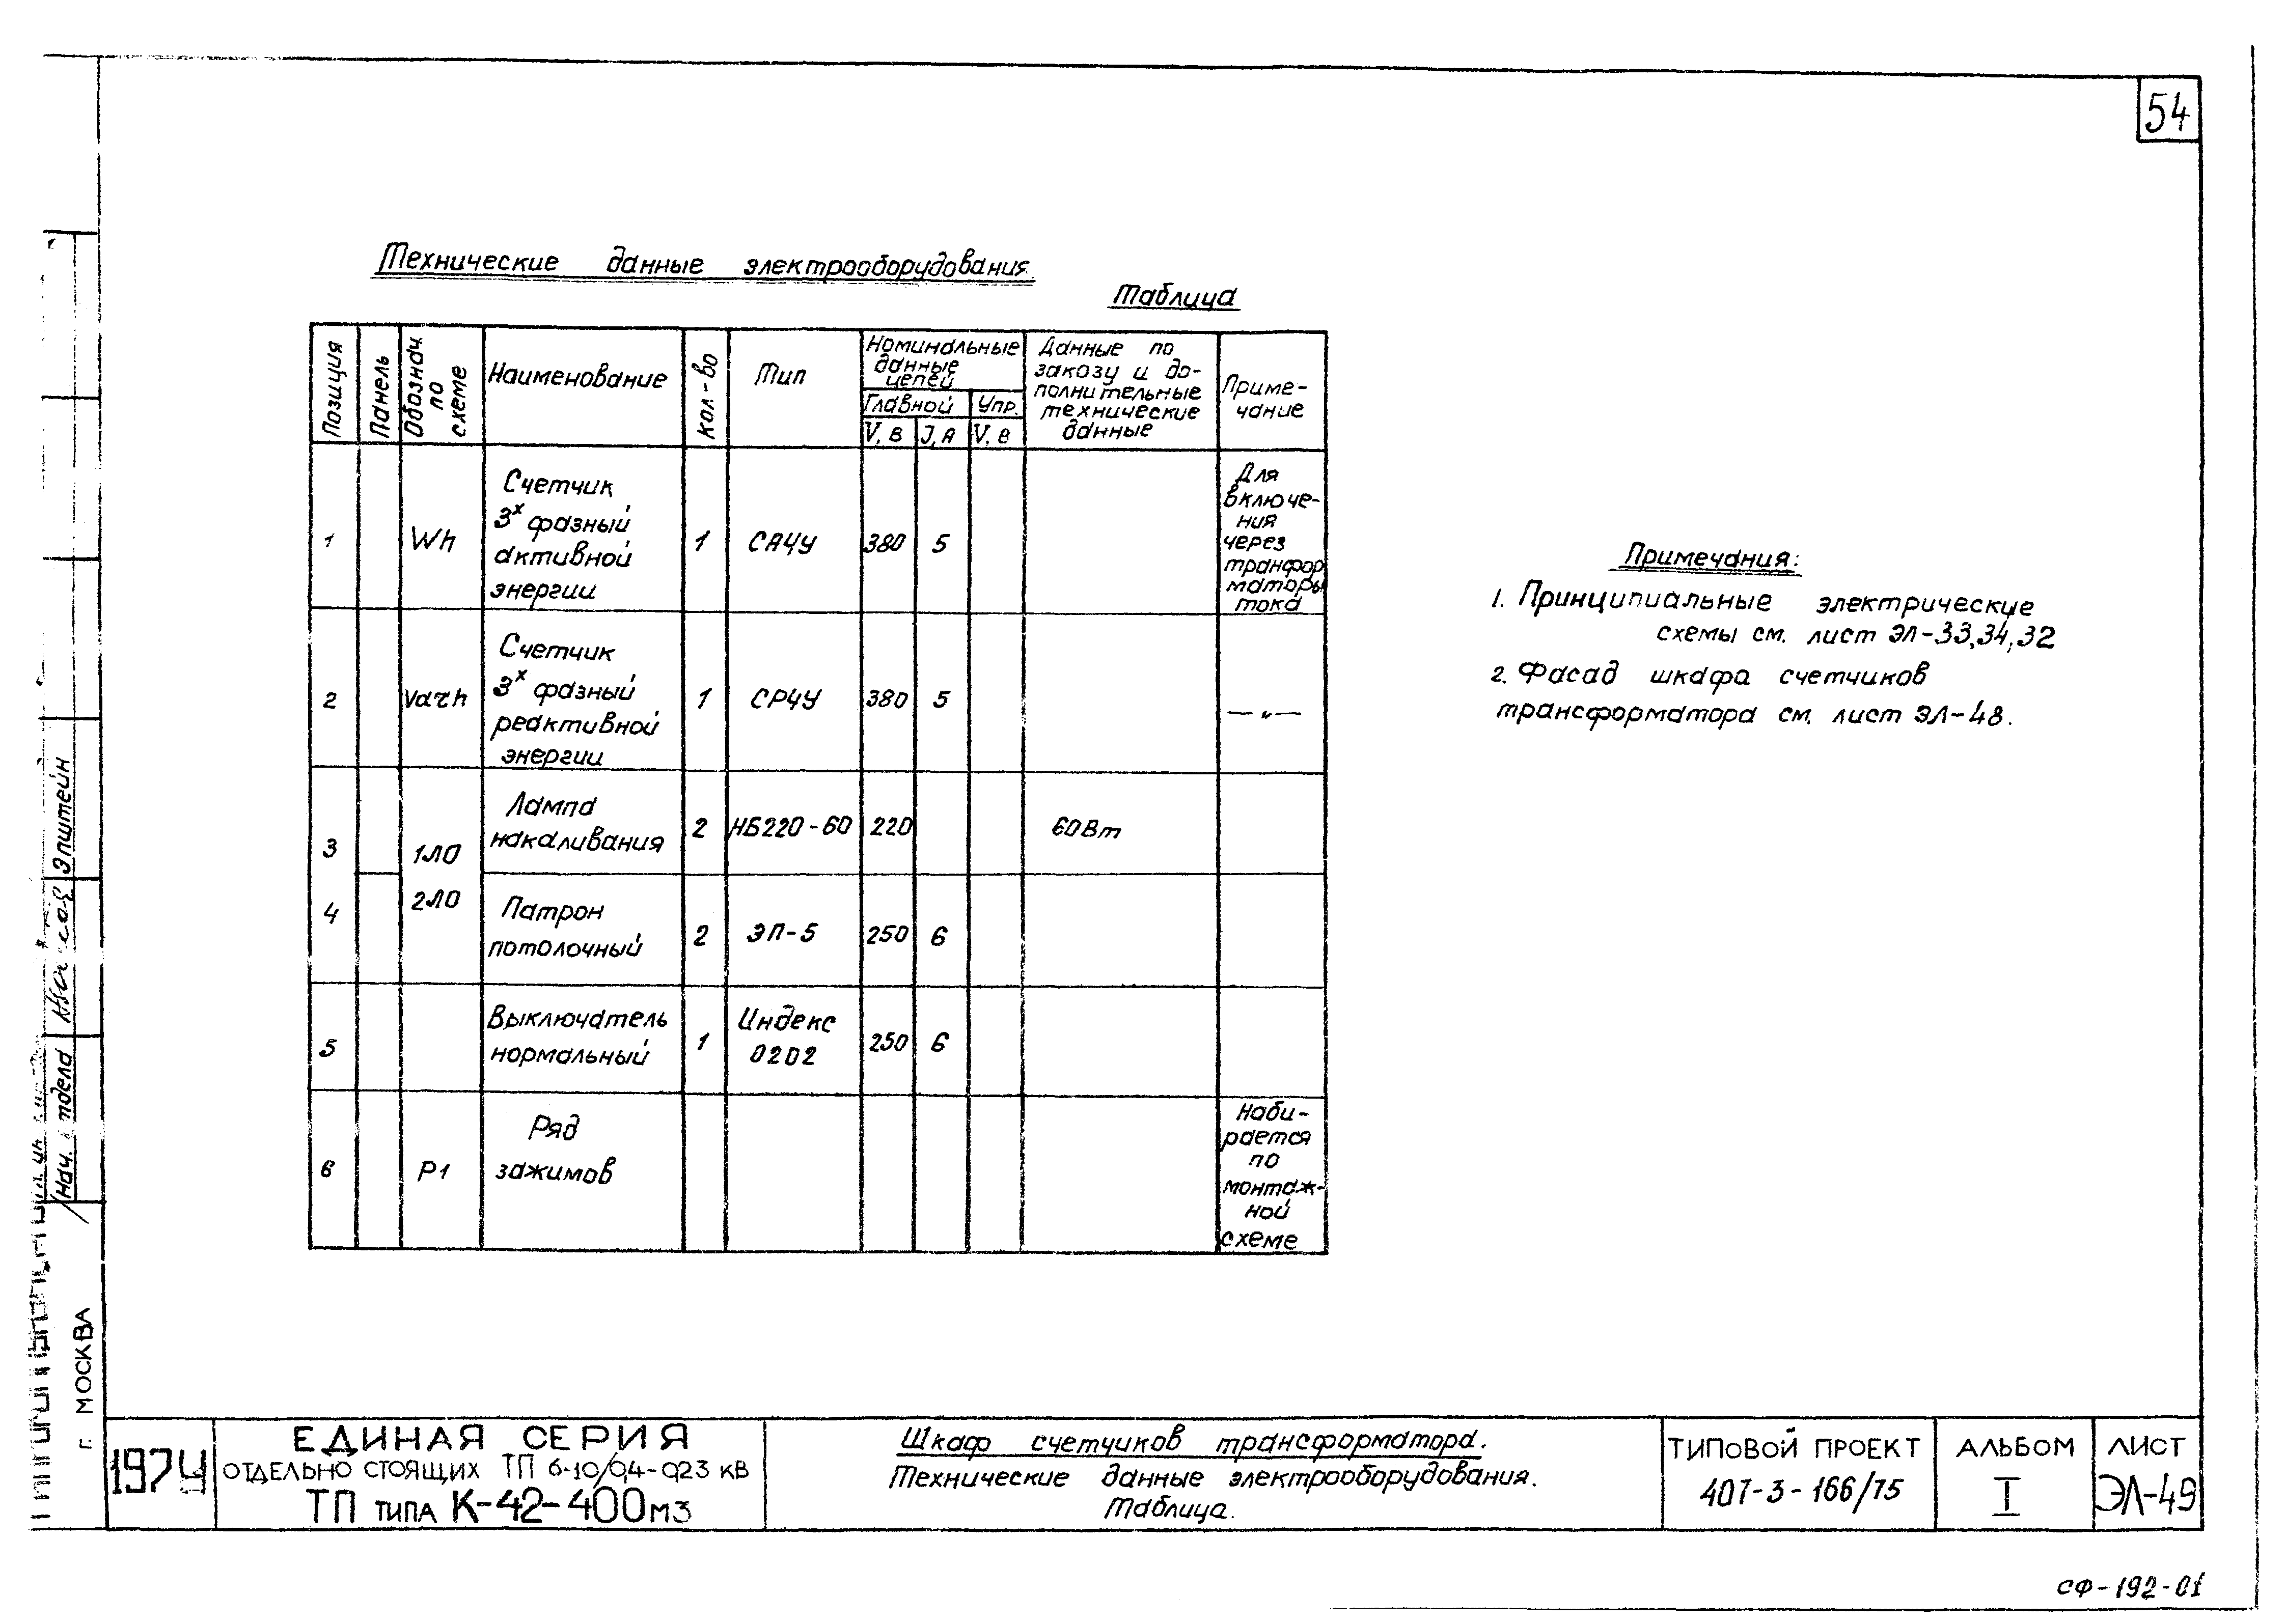 54
Технические данные электрооборудования.
Таблица
Позиция
Панель
Обознач. по схеме
Наименование
Кол-во
Тип
Номинальные
данные
цепей
Главной Упр.
V, В J, А V, В
Данные по
заказу и до-
полнительные
технические
данные
Приме-
чание
1 Wh
Счетчик
3х фазный
активной
энергии
1 СА4У 380 5
Для
включе-
ния
через
транфор
маторы
тока
2 Varh
Счетчик
3х фазный
реактивной
энергии
1 СР4У 380 5 —"—
3 1ЛО
Лампа
накаливания
2 НБ220-60 220 60Вт
4 2ЛО
Патрон
потолочный
2 ЭП-5 250 6
5
Выключатель
нормальный
1 Индекс
0202
250 6
6 Р1
Ряд
зажимов
Наби-
рается
по
монтаж-
ной
схеме
Примечания:
1. Принципиальные электрические
схемы см. лист ЭЛ-33,34,32
2. Фасад шкафа счетчиков
трансформатора см. лист ЭЛ-48.
Эпштейн
Нач. отдела
г. МОСКВА
1974
ЕДИНАЯ СЕРИЯ
ОТДЕЛЬНО СТОЯЩИХ ТП 6-10/0,4-0,23 кВ
ТП ТИПА К-42-400м3
Шкаф счетчиков трансформатора.
Технические данные электрооборудования.
Таблица.
ТИПОВОЙ ПРОЕКТ
407-3-166/75
АЛЬБОМ
I
ЛИСТ
ЭЛ-49
СФ-192-01